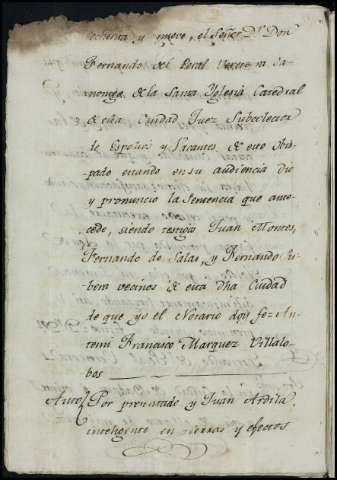 ochenta y nueve, el Señor Dr. Don
Fernando del Peral Ca-
nonigo de la Santa Yglesia Catedral
de esta Ciudad Juez Subcolector
de Espolios y Vacantes de este Obis-
pado estando en su audiencia dio
y pronuncio la Sentencia que ante-
cede, siendo testigos Juan Montes,
Fernando de Salas, y Fernando
vecinos de esta dha Ciudad
de que yo el Notario doy fe: An-
temi Francisco Marquez Villalo-
bos
Auto Por presentado y Juan Ardila
inteligente en tierras y efectos